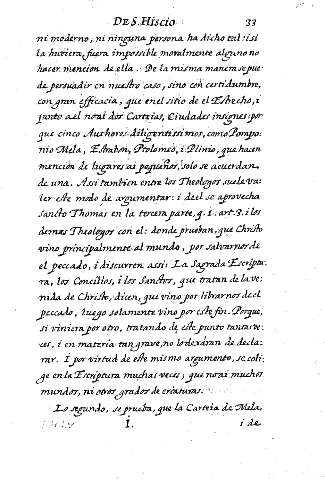 DE S. Hiscio 33
ni moderno, ni ninguna persona ha dicho tal: i si
la huviera, fuera impossible moralmente alguno no
hacer mencion de ella. De la misma manera se pue-
de persuadir en nuestro caso, sino con certidumbre,
con gran efficacia, que en el sitio de el Estrecho, i
junto a el no ai dos Carteias, Ciudades insignes: por
que cinco Authores diligentissimos, como Pompo-
nio Mela, Estrabon, Ptolomeo, i Plinio, que hacen
mencion de lugares ai pequeños, solo se acuerdan
de una. Assi tambien entre los Theologos suele va-
ler este modo de argumentar: i de el se aprovecha
sancto Thomas en la tercera parte, q. 1. art. 3. i los
demas Theologos con el: donde prueban, que Christo
vino principalmente al mundo, por salvarnos de
el peccado, i discurren assi: La Sagrada Escriptu-
ra, los Concilios, i los Sanctos, que tratan de la ve-
nida de Christo, dicen, que vino por librarnos de el
peccado, luego solamente vino por este fin. Porque,
si viniera por otro, tratando de este punto tantas ve-
ces, i en materia tan grave, no lo dexaran de decla-
rar. I por virtud de este mismo argumento, se coli-
ge en la Escriptura muchas veces, que no ai muchos
mundos, ni otros grados de criaturas.
Lo segundo, se prueba, que la Carteia de Mela,
I. i de